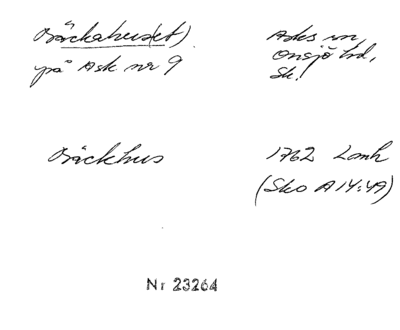 Bäckahus(et)
på Ask nr 9
Asks sn,
Onsjö hd,
Sk.
Bäckhus
1762 Lomh
(Sko A 14:49)
Nr 23264